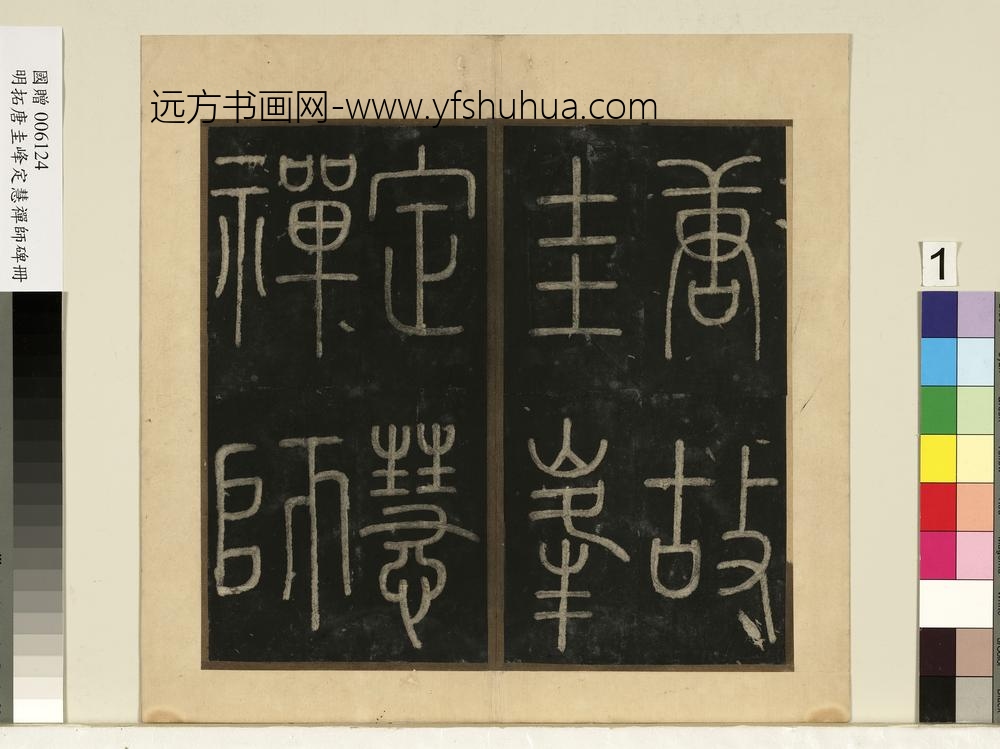 國贈 006124
明拓唐圭峰定慧禪師碑冊
远方书画网-www.yfshuhua.com
唐故
圭峯
定慧
禪師
1